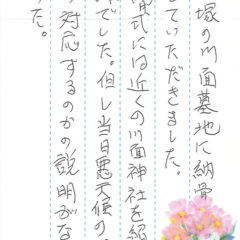 塚の川面墓地に納骨
していただきました。
式には近くの川面神社を紹
でした。但し当日悪天候の
対応するのかの説明がな
た。